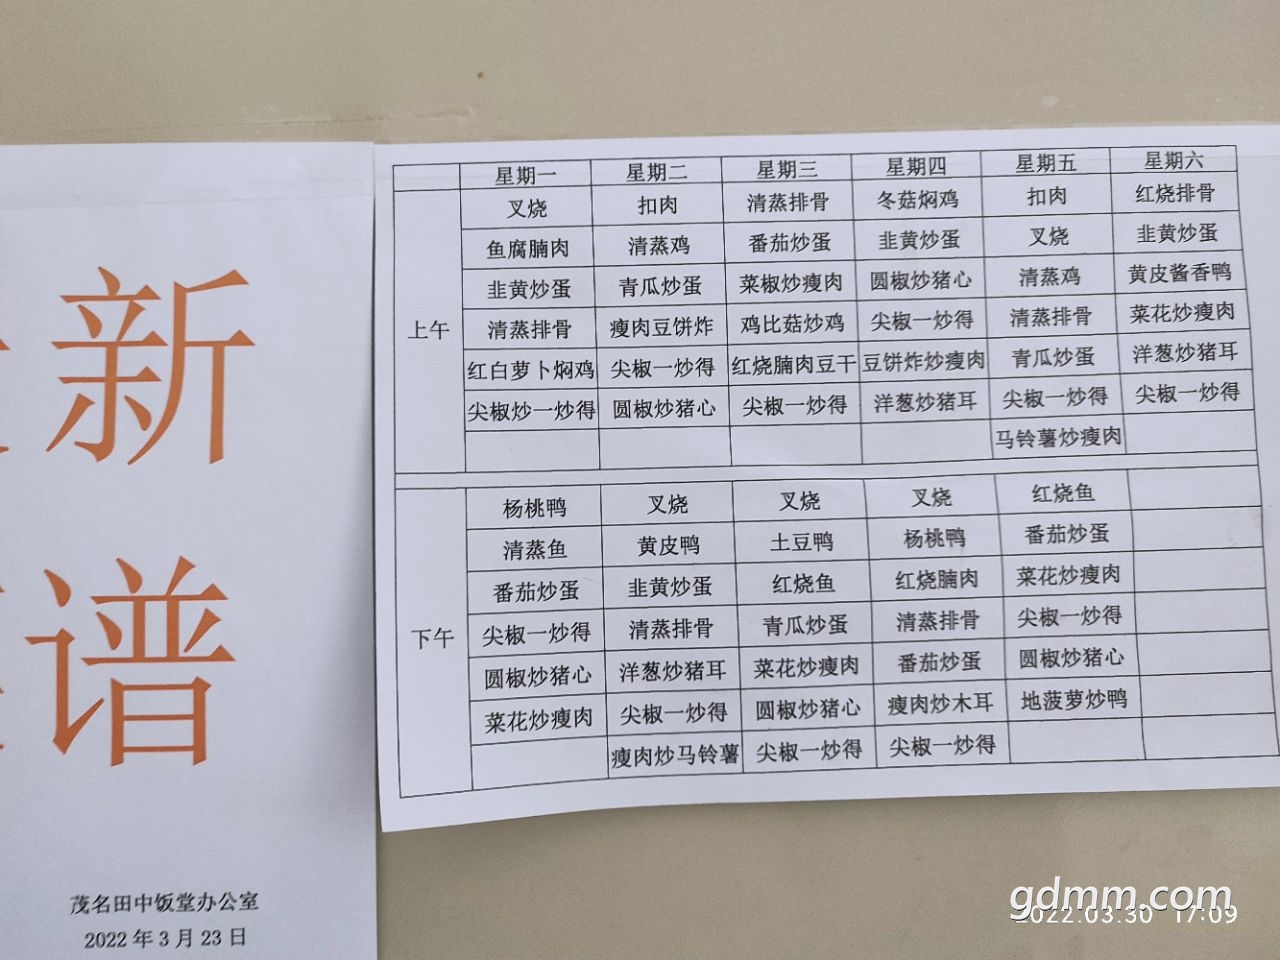 新
谱
茂名田中饭堂办公室
2022 年 3 月 23 日
星期一 星期二 星期三 星期四 星期五 星期六
上午
叉烧 扣肉 清蒸排骨 冬菇焖鸡 扣肉 红烧排骨
鱼腐腩肉 清蒸鸡 番茄炒蛋 韭黄炒蛋 叉烧 韭黄炒蛋
韭黄炒蛋 青瓜炒蛋 菜椒炒瘦肉 圆椒炒猪心 清蒸鸡 黄皮酱香鸭
清蒸排骨 瘦肉豆饼炸 鸡比菇炒鸡 尖椒一炒得 清蒸排骨 菜花炒瘦肉
红白萝卜焖鸡 尖椒一炒得 红烧腩肉豆干 豆饼炸炒瘦肉 青瓜炒蛋 洋葱炒猪耳
尖椒炒一炒得 圆椒炒猪心 尖椒一炒得 洋葱炒猪耳 尖椒一炒得 尖椒一炒得
马铃薯炒瘦肉
下午
杨桃鸭 叉烧 叉烧 叉烧 红烧鱼
清蒸鱼 黄皮鸭 土豆鸭 杨桃鸭 番茄炒蛋
番茄炒蛋 韭黄炒蛋 红烧鱼 红烧腩肉 菜花炒瘦肉
尖椒一炒得 清蒸排骨 青瓜炒蛋 清蒸排骨 尖椒一炒得
圆椒炒猪心 洋葱炒猪耳 菜花炒瘦肉 番茄炒蛋 圆椒炒猪心
菜花炒瘦肉 尖椒一炒得 圆椒炒猪心 瘦肉炒木耳 地菠萝炒鸭
瘦肉炒马铃薯 尖椒一炒得 尖椒一炒得
gdmm.com
2022.03.30 17:09